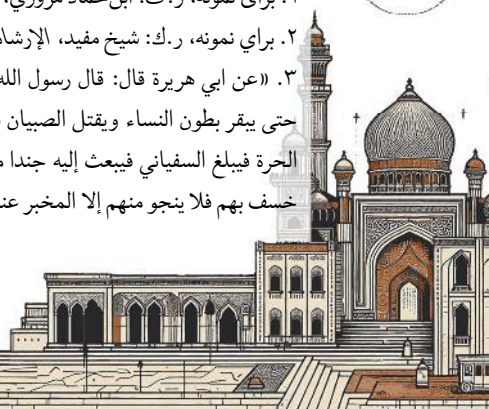 ۱. برای نمونه، ر.ک: ابن‌حماد مروزی،
۲. براي نمونه، ر.ك: شيخ مفيد، الإرشاد
۳. «عن ابي هريرة قال: قال رسول الله
حتى يبقر بطون النساء ويقتل الصبيان
الحرة فيبلغ السفياني فيبعث إليه جندا
خسف بهم فلا ينجو منهم إلا المخبر